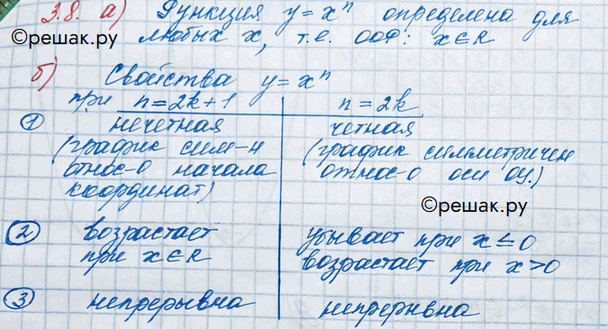 3.8. а) Функция y = xⁿ определена для
©решак.ру любых x, т.е. ООФ: x∈R
б) Свойства y = xⁿ
при n=2k+1 n=2k
① нечетная четная
(график сим-ч (график симметричен
относ-о начала относ-о оси oy.)
координат)
©решак.ру
② возрастает убывает при x ≤ 0
при x∈R возрастает при x>0
③ непрерывна непрерывна